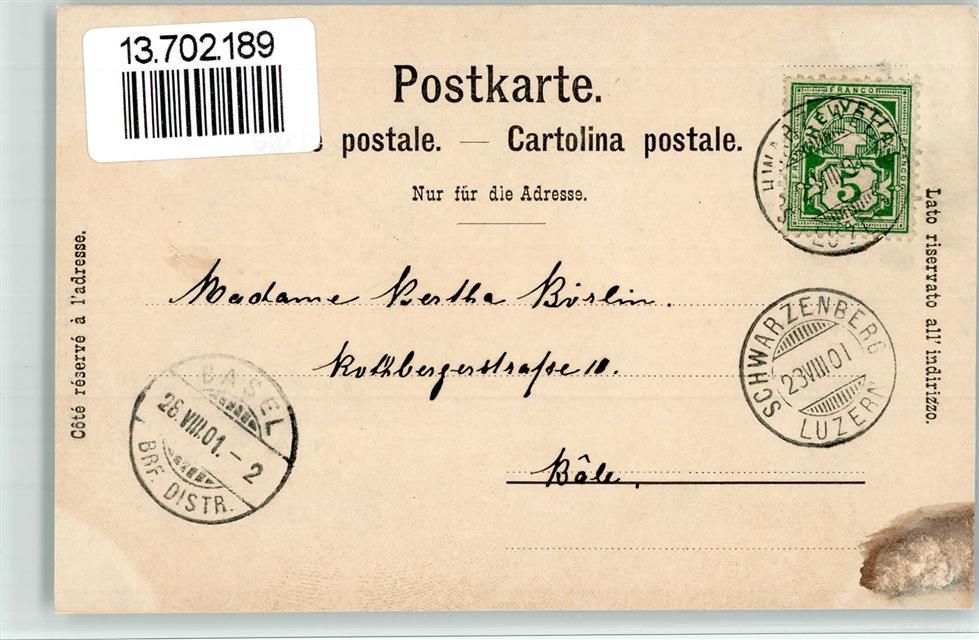 13.702.189
Postkarte.
postale. — Cartolina postale.
Nur für die Adresse.
FRANCO
HELVETIA
FRANCO
5
Côté réservé à l'adresse.
Lato riservato all' indirizzo.
Madame Bertha Börlin.
Rothbergerstraße 10.
Bâle.
SCHWARZENBERG
23 VIII 01
LUZERN
BASEL
26 VIII.01.-2
BRF. DISTR.